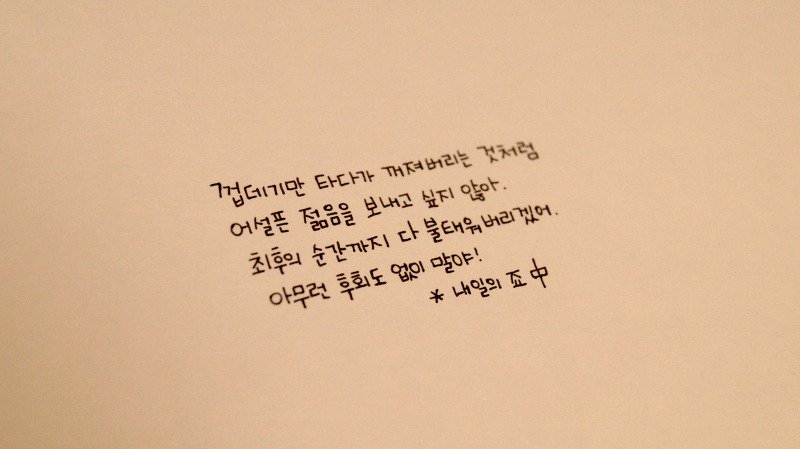 껍데기만 타다가 꺼져버리는 것처럼
어설픈 젊음을 보내고 싶지 않아.
최후의 순간까지 다 불태워버리겠어.
아무런 후회도 없이 말야!
* 내일의 죠 中